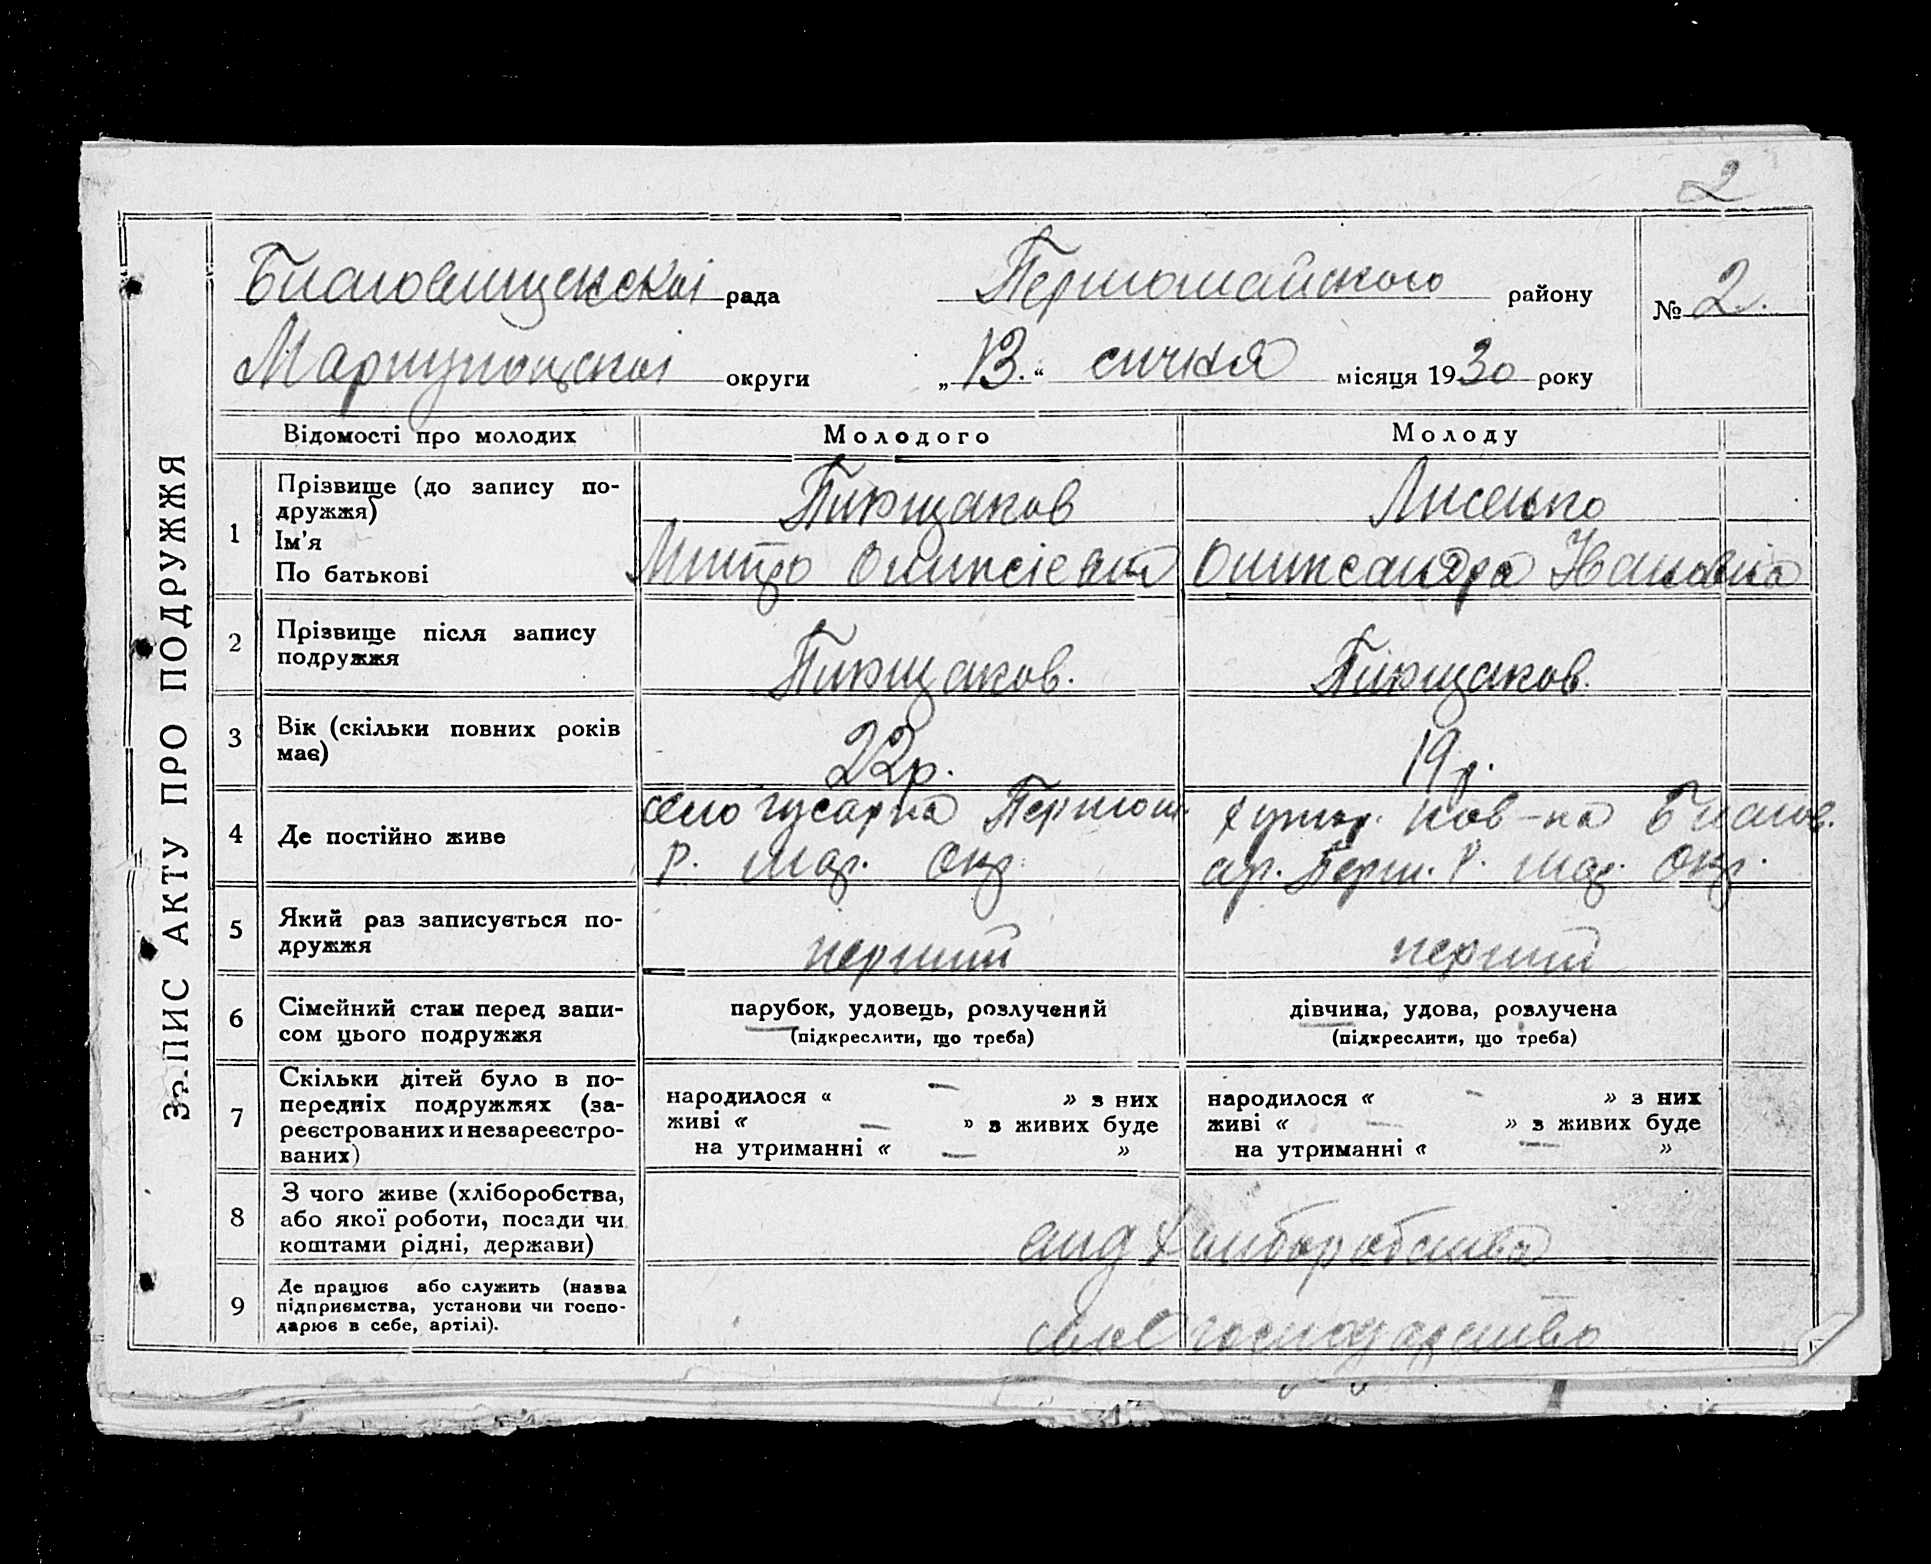 2
Благовищенскої рада Першомайского району № 2.
Мариупольскої округи „13.“ сичня місяця 1930 року
ЗАПИС АКТУ ПРО ПОДРУЖЖЯ
Відомості про молодих Молодого Молоду
1 Прізвище (до запису по-
дружжя)
Ім'я
По батькові
Лисенко
Митро Олексієвич Олександра Ивановна
2 Прізвище після запису
подружжя
3 Вік (скільки повних років
має)
22р. 19р.
4 Де постійно живе
село гусарка Першом.
Р. Мар. Окр.
хутор. Нов-ка Благов.
ср. Перш. Р. Мар. Окр.
5 Який раз записується по-
дружжя
перший перший
6 Сімейний стан перед запи-
сом цього подружжя
парубок, удовець, розлучений
(підкреслити, що треба)
дівчина, удова, розлучена
(підкреслити, що треба)
7 Скільки дітей було в по-
передніх подружжях (за-
реєстрованих и незареєстро-
ваних)
народилося « — » з них
живі « — » з живих буде
на утриманні « — »
народилося « — » з них
живі « — » з живих буде
на утриманні « — »
8 З чого живе (хліборобства,
або якої роботи, посади чи
коштами рідні, держави)
від хлиборобства
9 Де працює або служить (назва
підприємства, установи чи госпо-
дарює в себе, артілі).
господарство